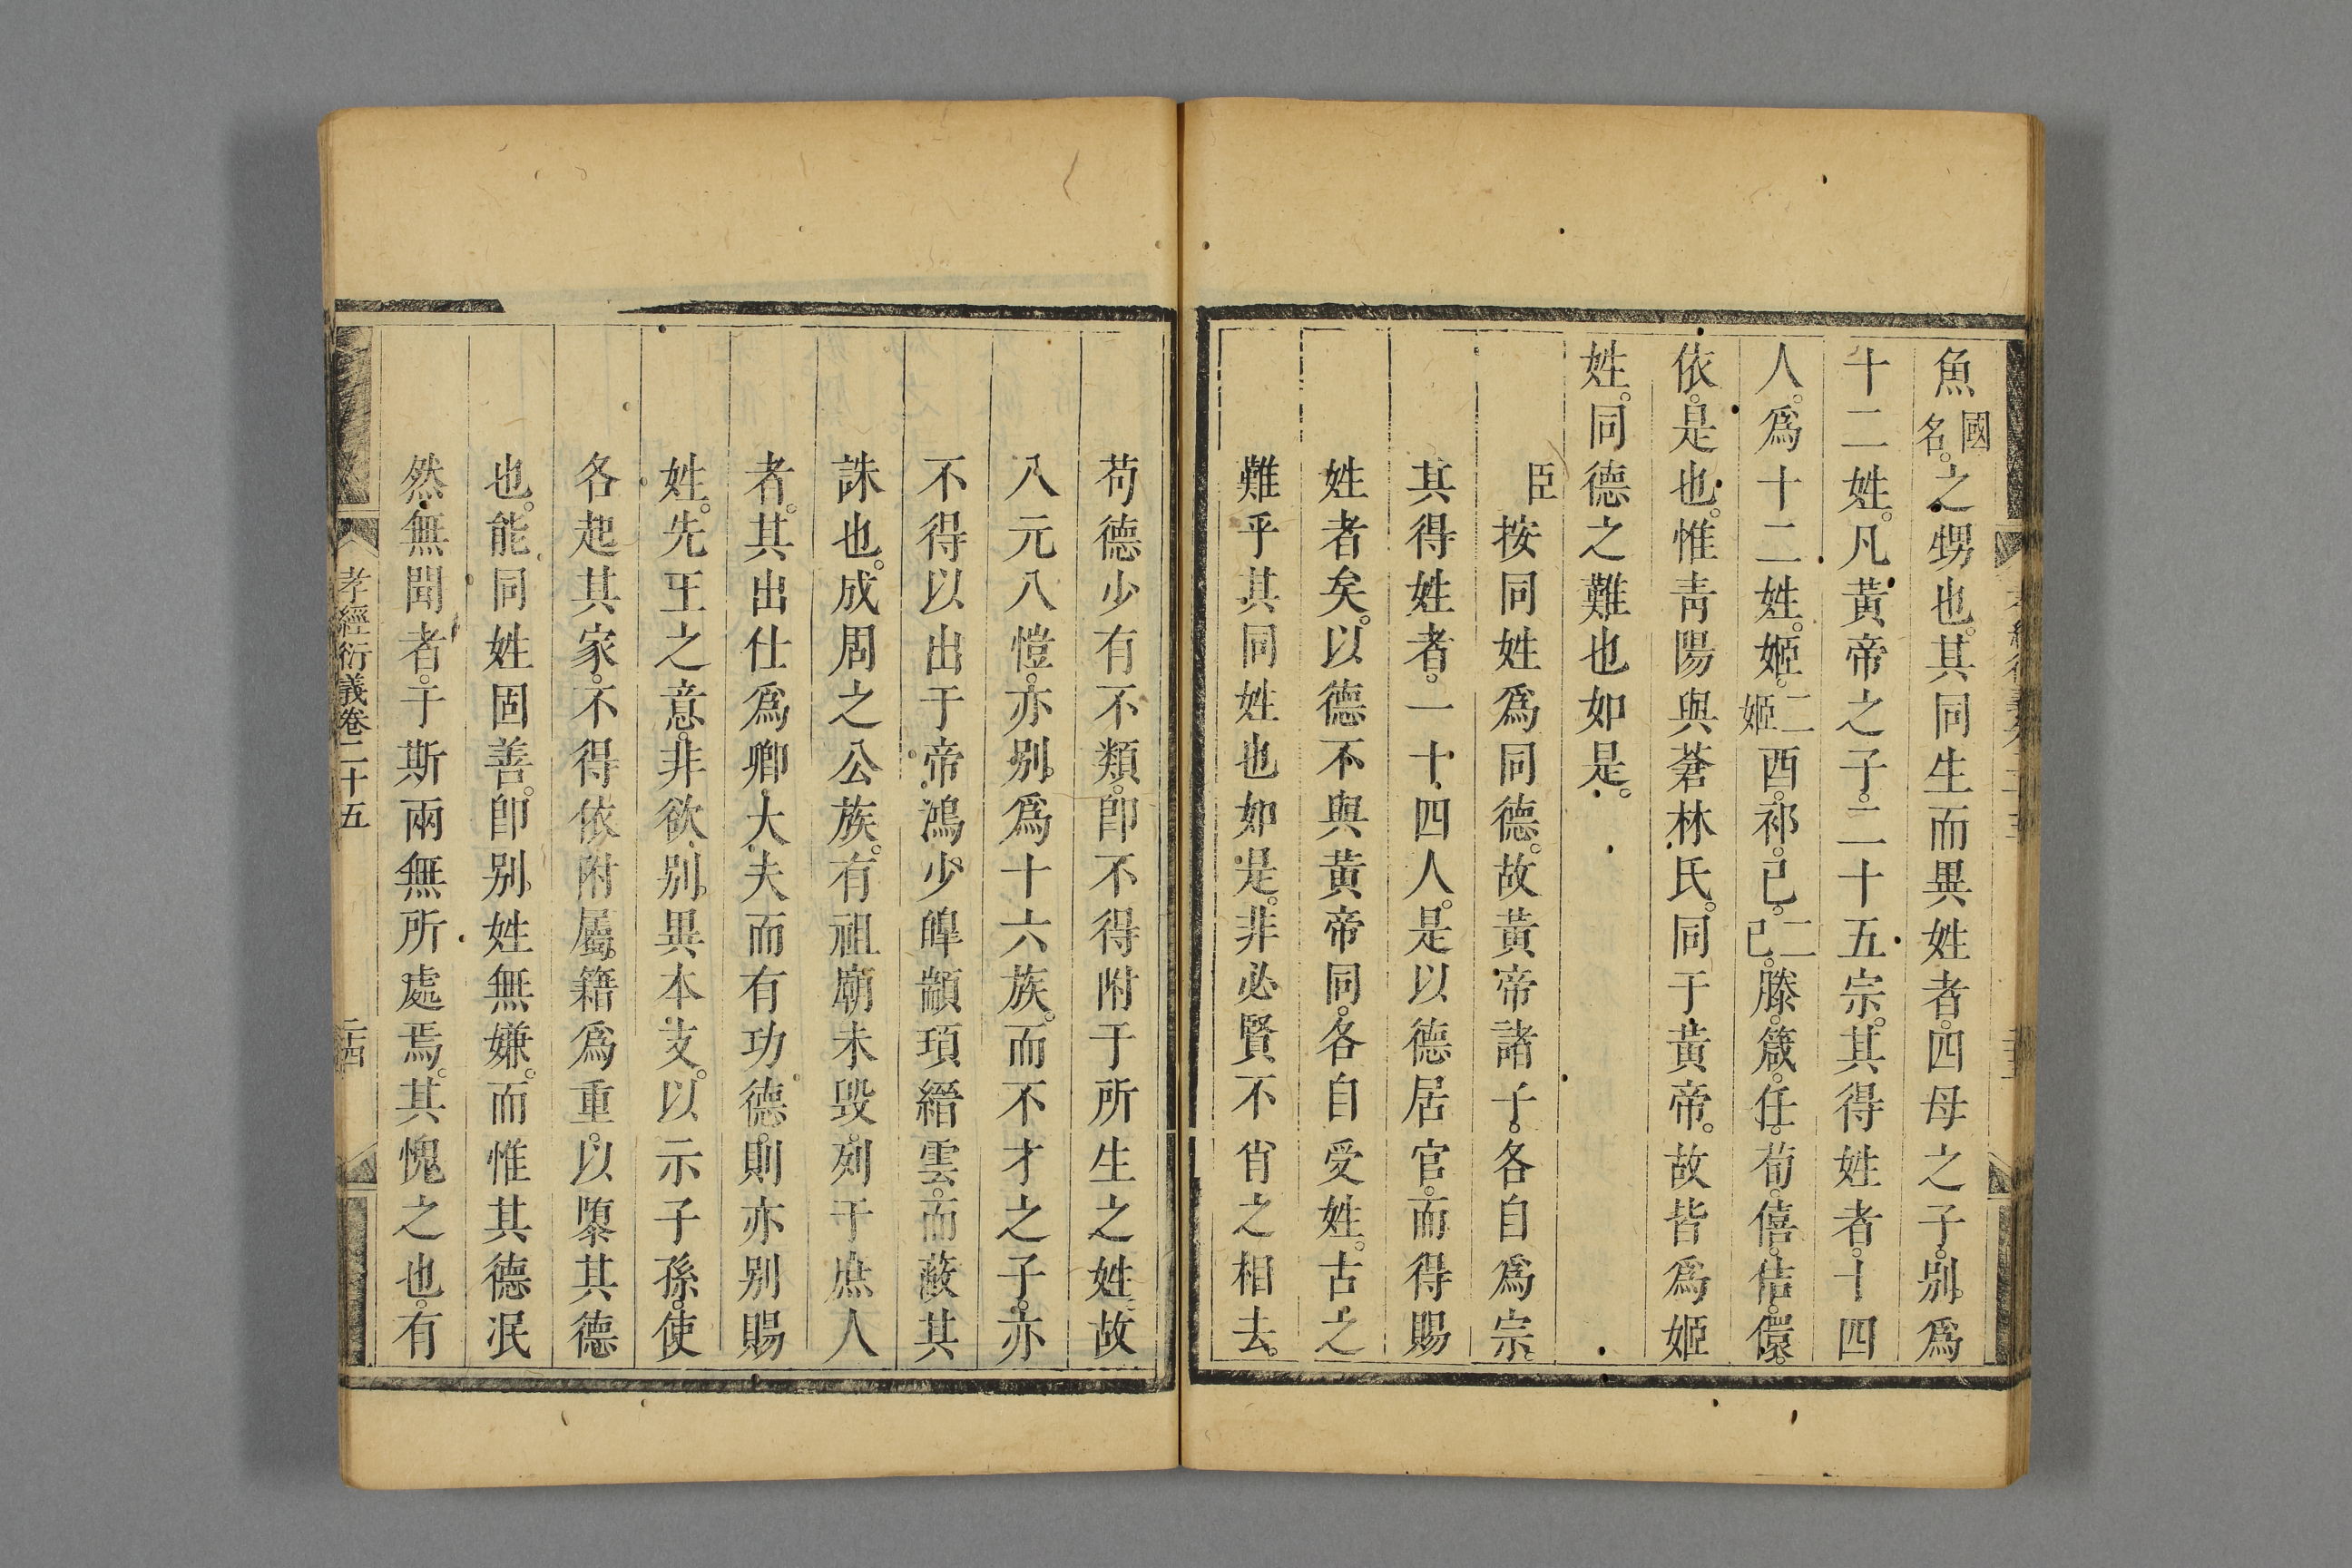 魚國名。之甥也。其同生而異姓者。四母之子。別爲
十二姓。凡黃帝之子。二十五宗。其得姓者。十四
人。爲十二姓。姬。二姬酉。祁。己。二己。滕。箴。任。荀。僖。佶。儇。
依。是也。惟靑陽與蒼林氏。同于黃帝。故皆爲姬
姓。同德之難也如是。
臣按同姓爲同德。故黃帝諸子。各自爲宗。
其得姓者。一十四人。是以德居官。而得賜
姓者矣。以德不與黃帝同。各自受姓。古之
難乎其同姓也如是。非必賢不肖之相去。
苟德少有不類。卽不得附于所生之姓。故
八元八愷。亦別爲十六族。而不才之子。亦
不得以出于帝鴻。少皥顓頊縉雲。而蔽其
誅也。成周之公族。有祖廟未毀。列于庶人
者。其出仕爲卿大夫而有功德。則亦別賜
姓。先王之意。非欲別異本支。以示子孫。使
各起其家。不得依附屬籍爲重。以隳其德
也。能同姓固善。卽別姓無嫌。而惟其德泯
然無聞者。于斯兩無所處焉。其愧之也。有
孝經衍義卷二十五
二四